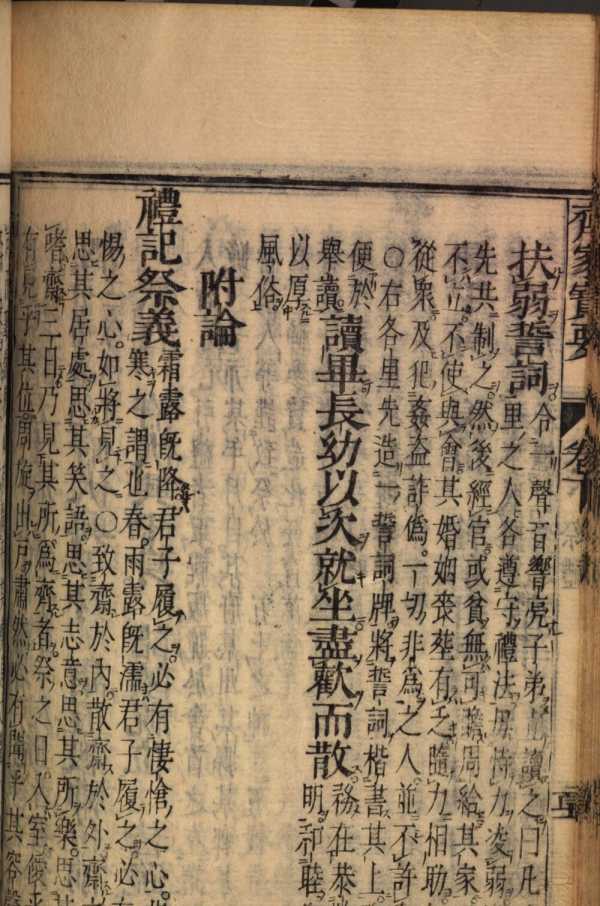 齊家寳要
卷下
扶弱誓詞
令一聲音響亮子弟讀之曰凡
里之人各遵守禮法毋恃力凌弱
先共制之然後經官或貧無可
周給其家
不立不使與會其婚姻喪葬有乏隨力相助
從衆及犯姦盜詐僞一切非為之人並不許
〇右各里先造一誓詞牌將誓詞楷書其上
便於
舉讀
讀畢長幼以次就坐盡歡而散
務在恭
明和睦
以厚
風俗
附論
禮記祭義
霜露旣降君子履之必有悽愴之心
寒之謂也春雨露旣濡君子履之必有
惕之心如將見之〇致齋於内散齋於外齋
思其居處思其笑語思其志意思其所樂思
齋三日乃見其所為齊者祭之日入室僾
乎其位周旋出戸肅然必有聞乎其容